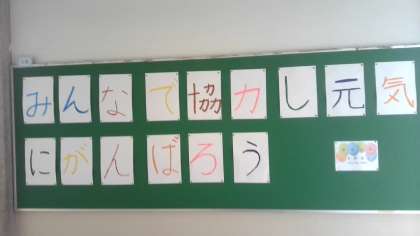 みんなで協力し元気
にがんばろう